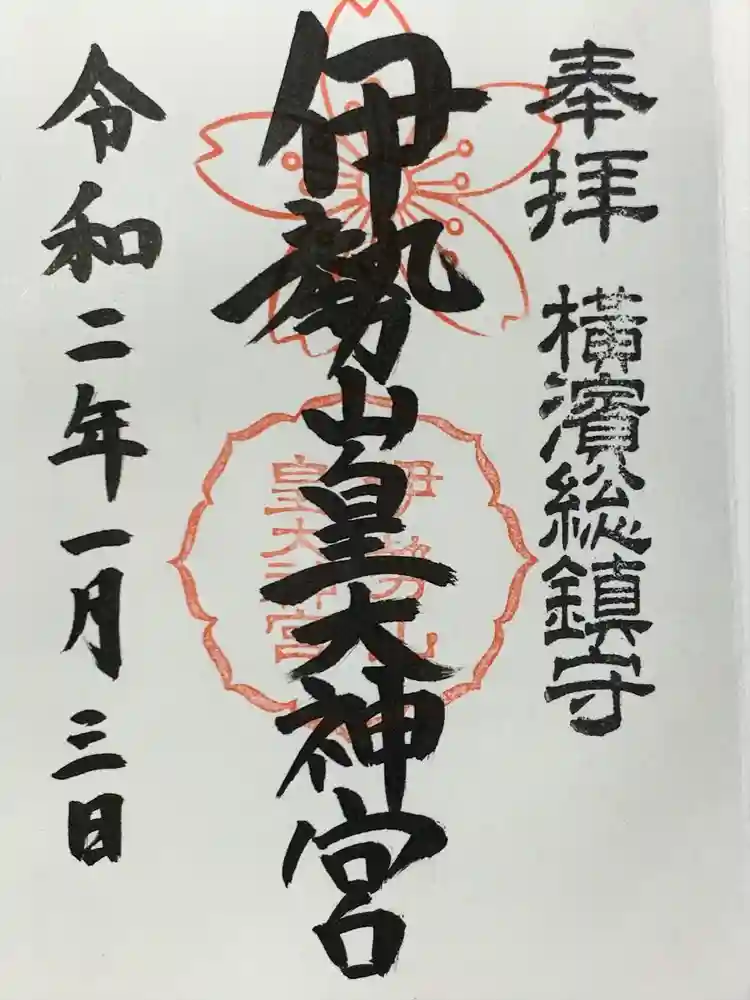 奉拝
横濱総鎮守
伊勢山皇大神宮
伊勢山
皇大神宮
令和二年一月三日